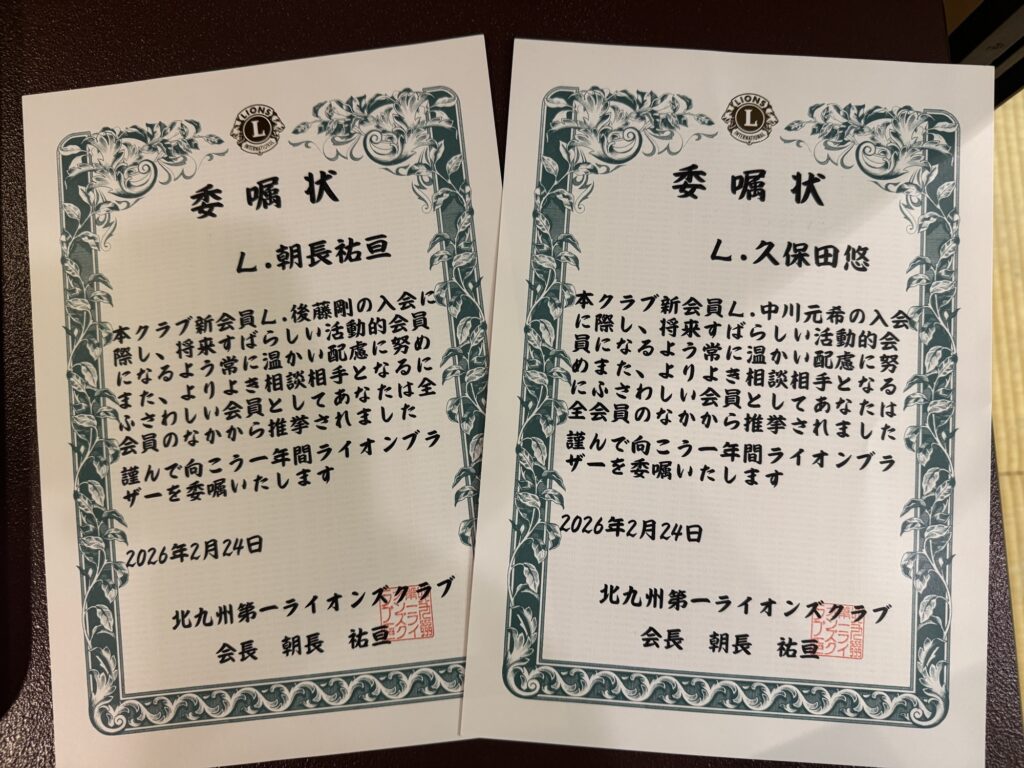 LIONS
L
INTERNATIONAL
委嘱状
L.朝長祐亘
本クラブ新会員L.後藤剛の入会に
際し、将来すばらしい活動的会員
になるよう常に温かい配慮に努め
また、よりよき相談相手となるに
ふさわしい会員としてあなたは全
会員のなかから推挙されました
謹んで向こう一年間ライオンブラ
ザーを委嘱いたします
2026年2月24日
北九州第一ライオンズクラブ
会長 朝長 祐亘
LIONS
L
INTERNATIONAL
委嘱状
L.久保田悠
本クラブ新会員L.中川元希の入会
に際し、将来すばらしい活動的会
員になるよう常に温かい配慮に努
めまた、よりよき相談相手となる
にふさわしい会員としてあなたは
全会員のなかから推挙されました
謹んで向こう一年間ライオンブラ
ザーを委嘱いたします
2026年2月24日
北九州第一ライオンズクラブ
会長 朝長 祐亘